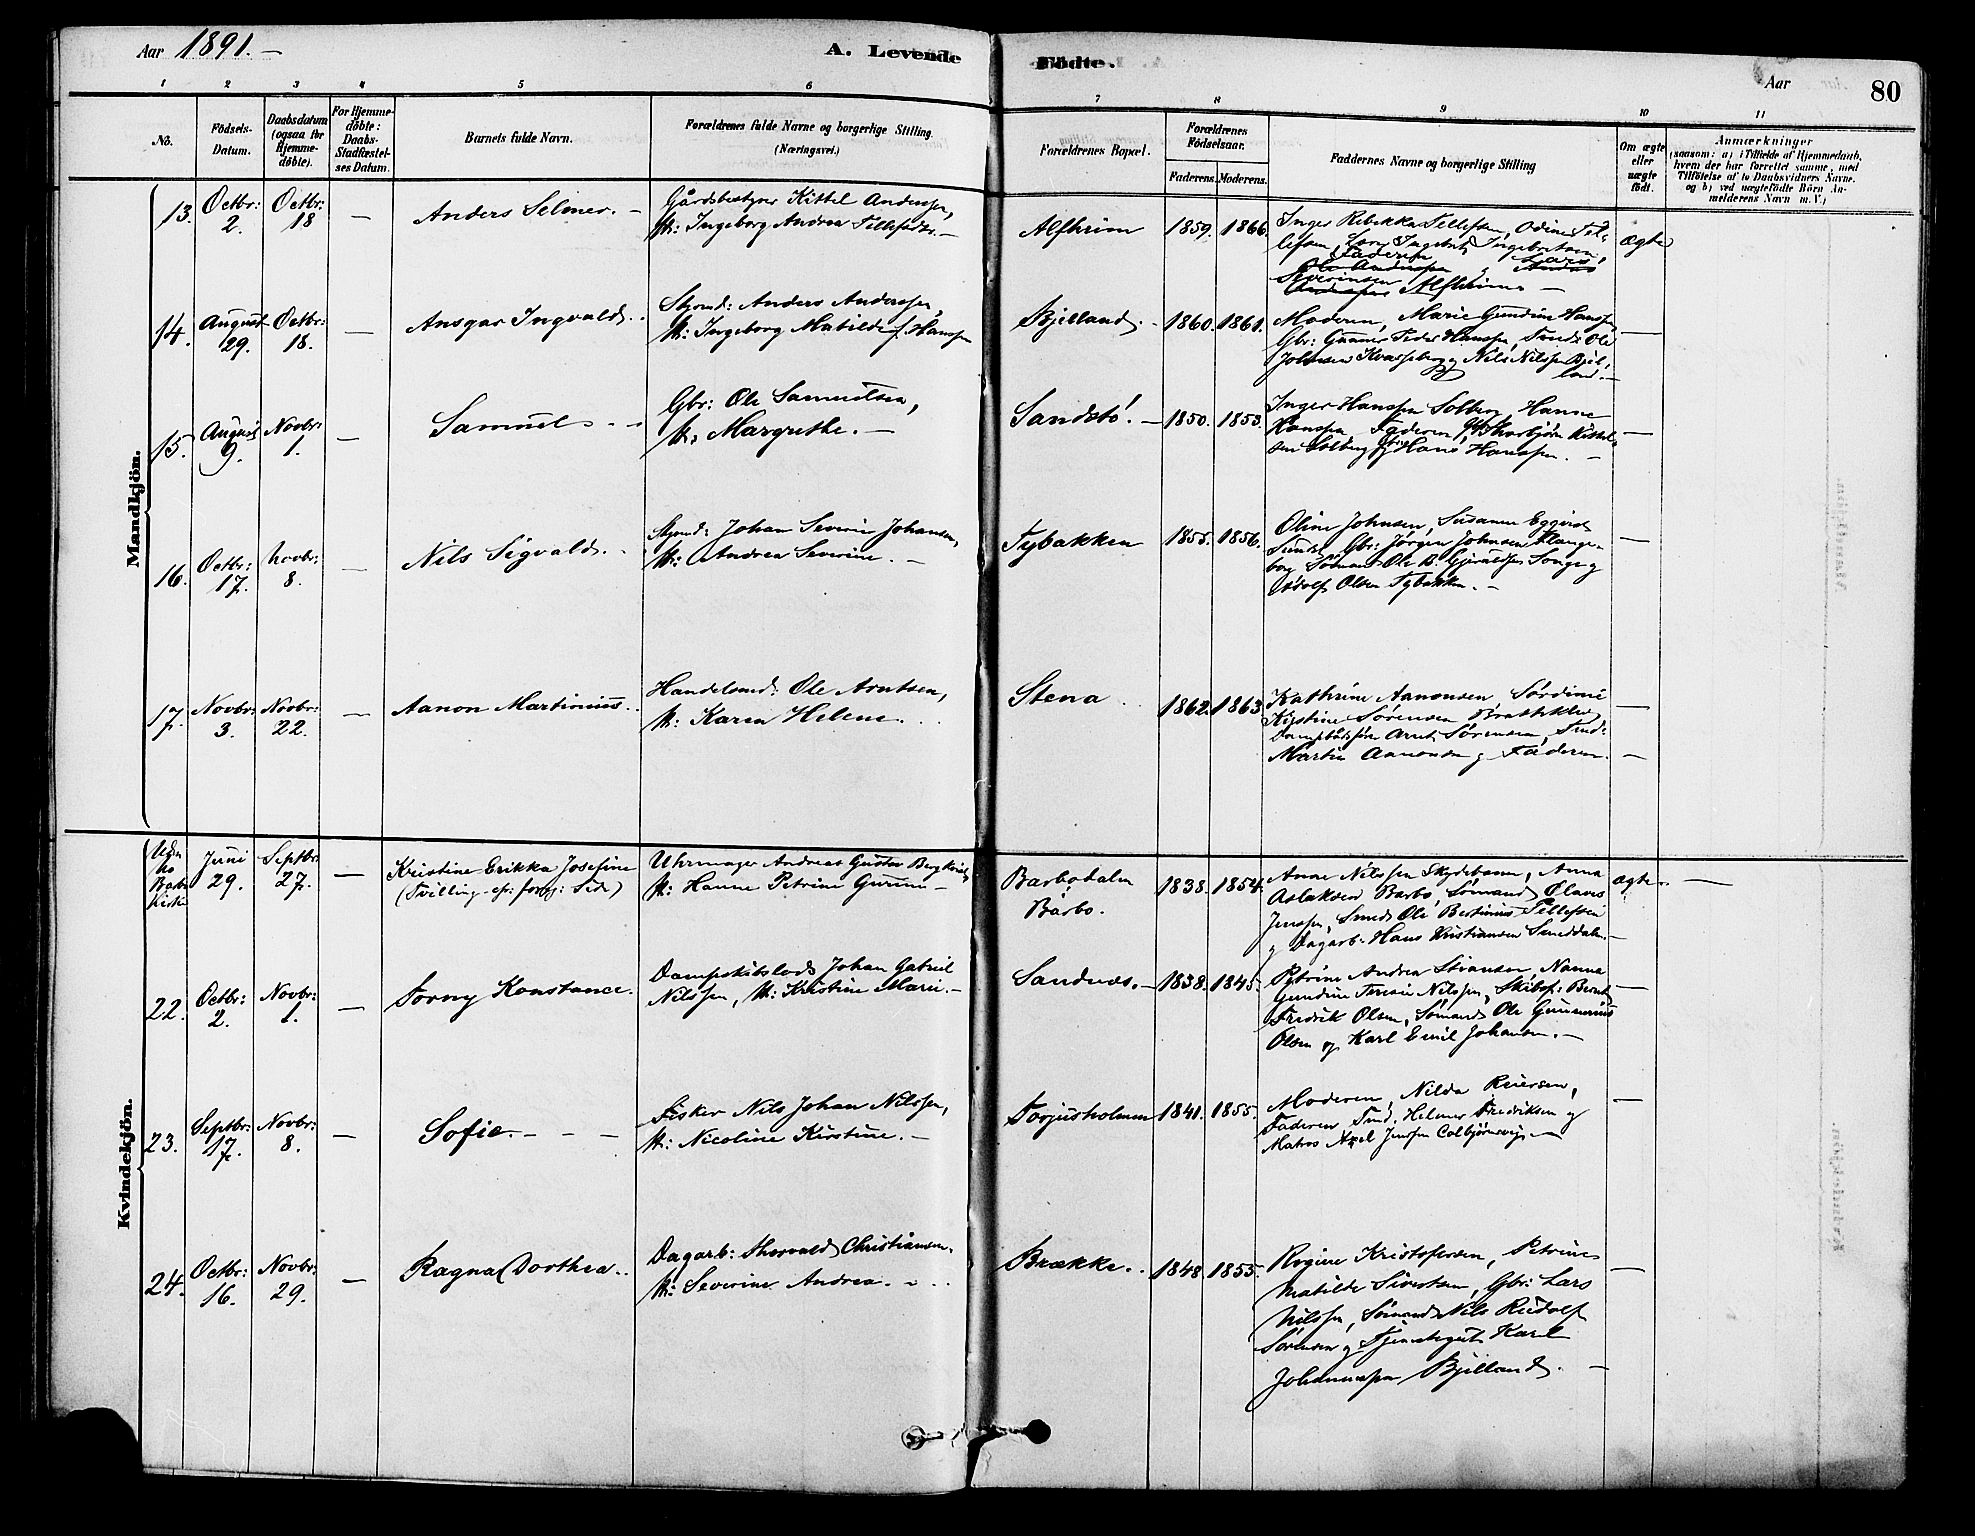 Aar 1891. —
A. Levende
Fødte.
Aar
80
1 2 3 4 5 6 7 8 9 10 11
No.
Födsels-
Datum.
Daabsdatum
(ogsaa for
Hjemme-
döbte).
For Hjemme-
döbte:
Daabs-
Stadfæstel-
ses Datum.
Barnets fulde Navn.
Forældrenes fulde Navne og borgerlige Stilling.
(Næringsvei.)
Forældrenes Bopæl.
Forældrenes
Födselsaar.
Faderens. Moderens.
Faddernes Navne og borgerlige Stilling
Om ægte
eller
uægte
födt.
Anmærkninger
(saasom: a) i Tilfælde af Hjemmedaab,
hvem der har forrettet samme, med
Tilföielse af to Daabsvidners Navne.
og b) ved uægtefödte Börn An-
melderens Navn m. V.)
Mandkjön.
13. Octbr: 2. Octbr: 18 — Anders Selmer. —
Gårdsbestyrer Kittel Anderssen,
H: Ingeborg Andrea Tellefsdtr. —
Alfheim 1859. 1866.
Inger Rebekka Tellefsen, Odine Tel-
lefsen, Ingebret Ingebretsen,
Faderen Lars
Severinsen
Alfheim —
Ægte
14. August 29. Octbr: 18. — Ansgar Ingvald. .
Styrmd: Anders Anderssen,
H: Ingeborg Matilde f. Hanssen
Bjelland. — 1860. 1861.
Moderen, Marie Gundine Hanssen,
Gbr: Gunner Peder Hanssen, Tmd: Ole
Johnsen Kvasseberg og Nils Nilssen Bjel-
land. —
—
15. August 9. Novbr: 1. — Samuel. .
Gbr: Ole Samuelsen,
H: Margrethe. —
Sandstö. — 1850. 1853.
Inger Hanssen Solberg, Hanne
Hanssen Faderen, Thorbjörn Kittel-
sen Solberg og Hans Hanssen. —
—
16. Octbr: 17. Novbr: 8. — Nils Sigvald. .
Styrmd: Johan Severin Johansen,
H: Andrea Severine. —
Tybakken 1855. 1856.
Oline Johnsen, Susanne Eggerts
Gbr: Jørgen Johnsen Klange-
borg Sömand Ole B. Gjeruldsen Songe og
Adolf Olsen Tybakken. —
—
17. Novbr: 3. Novbr: 22. — Aanon Martinius. .
Handelsmd: Ole Arntsen,
H: Karen Helene. .
Stena . 1862. 1863
Kathrine Aanonsen, Sørdine
Kirstine Sørensen Bratteklev,
Dampbåtsfører Arnt Sørensen, Tmd:
Martin Aanonsen og Faderen. —
—
Kvindekjön.
Uden
No
Barbo
Kirke
Juni 29. Septbr: 27. —
Kristine Erikka Josefine
(Tvilling cfr: forrg: Side)
Uhrmager Andreas Gustav Bergkvist,
H: Hanne Petrine Gurine —
Barbodalen
Barbo.
1838. 1854.
Anne Nilssen Skydebanen, Anna
Aslaksen Barbo, Sömand Olaves
Jenssen, Smed Ole Bertinius Tellefsen
og Dagarb: Hans Kristiansen Smeddalen. —
ægte. —
22. Octbr: 2. Novbr: 1. — Torny Konstance.
Dampskibslods Johan Gabriel
Nilssen, H: Kristine Marie. —
Sandnæs. — 1838. 1845.
Petrine Andrea Svansen, Nanna
Gundine Teresie Nilssen, Skibsf: Bernt
Fredrik Olsen, Sömand Ole Gunnerius
Olsen og Karl Emil Johansen. —
—
23. Septbr: 17. Novbr: 8. — Sofie. — — —
Fisker Nils Johan Nilssen,
H: Nicoline Kirstine. —
Torjusholmen 1841. 1855.
Moderen, Nilda Reiersen,
Faderen Tmd. Helmer Fredriksen og
Matros Axel Jenssen Colbjørnsvig. —
—
24. Octbr: 16. Novbr: 29. — Ragna Dorthea. .
Dagarb: Thorvald Christiansen.
H: Severine Andrea. — . .
Brække. . 1848 1855.
Regine Kristofersen, Petrine
Matilde Sivertsen, Gbr: Lars
Nilssen, Sömand Nils Rudolf
Sørensen og Tjenestegut Karl
Johannessen Bjelland. —
—